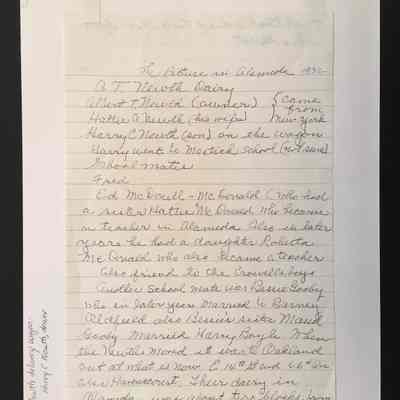 The Picture in Alameda 1890
A. T. Newth Dairy
Albert T. Newth (owner) { came
Hattie A Newth (his wife) { from
Harry C Newth (son) on the wagon { New York
Harry went to Mastick School (not sure)
School mates
Fred
Ed McDonell - McDonald (who had
a sister Hattie McDonald who became
a teacher in Alameda. Also in later
years he had a daughter Roberta
McDonald who also became a teacher
Also friend to the Crowells boys
Another School mate was Bessie Gooby
who in later years Married to Barney
Oldfield also Bessie's sister Maud
Gooby Married Harry Boyle. When
the Newths Moved it was to Oakland
out at what is now E. 14th St and Ave
Their dairy in
Alameda was about five blocks from
Newth delivery wagon
Harry C Newth